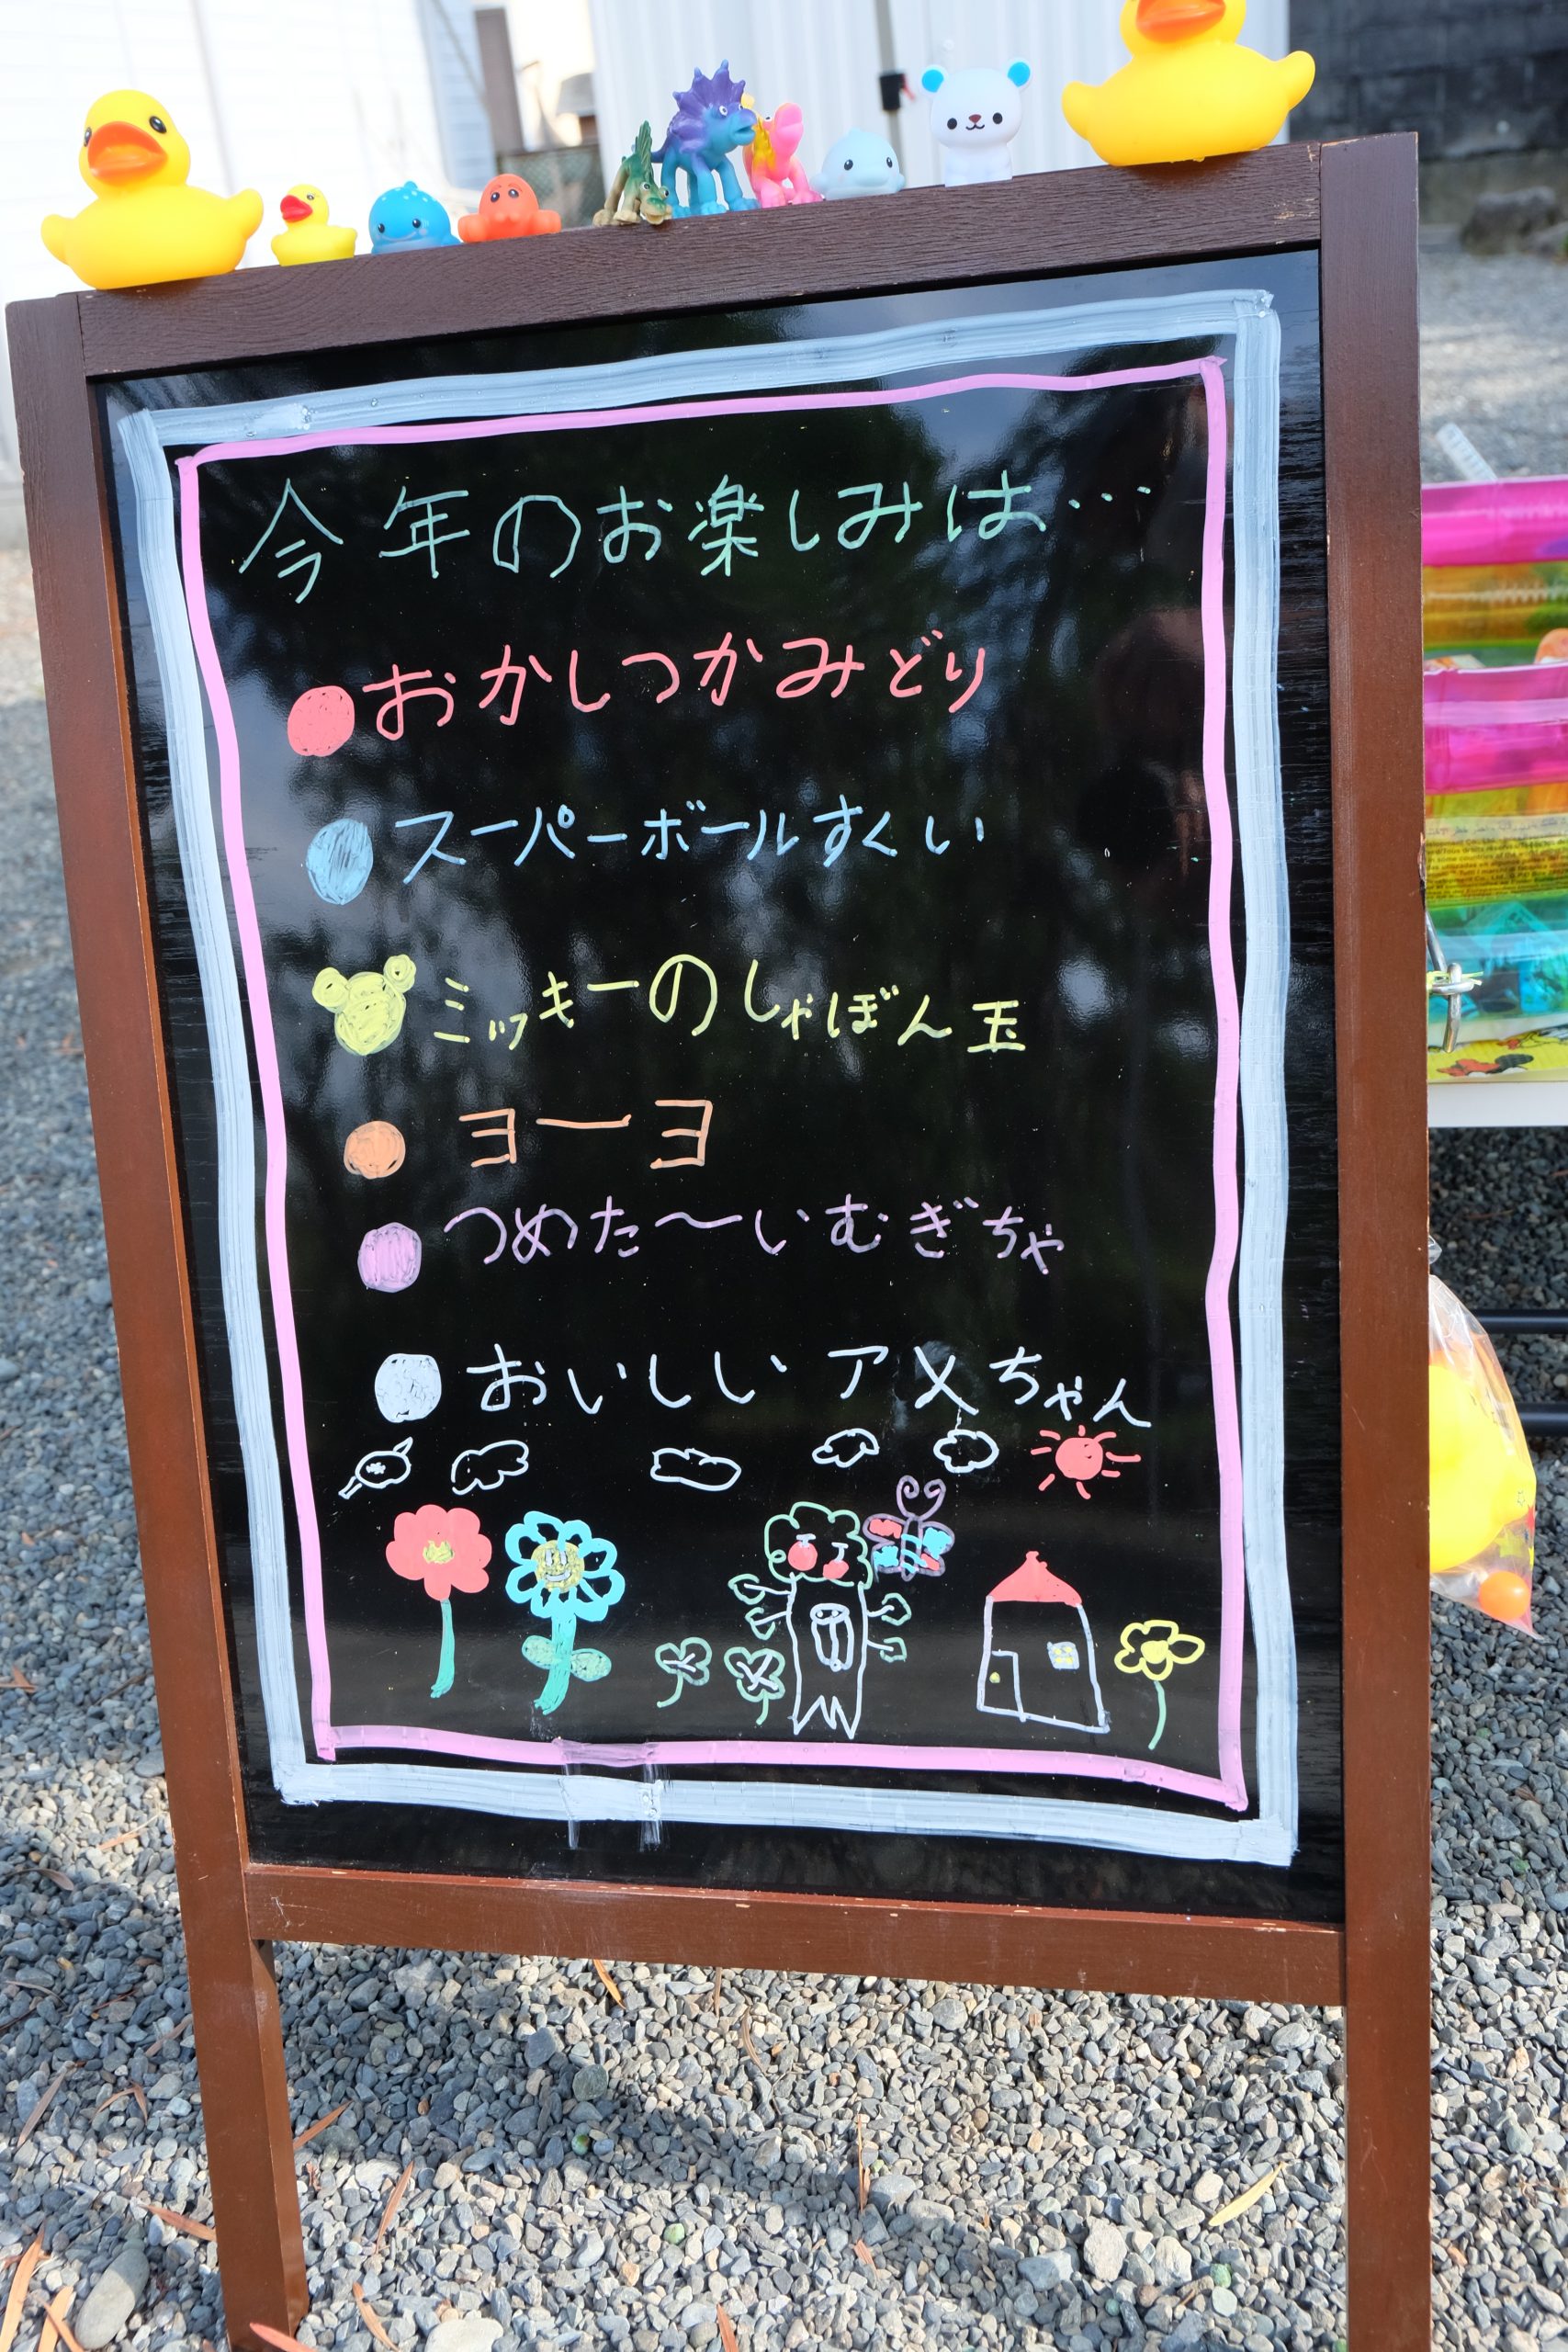 今年のお楽しみは…
おかしつかみどり
スーパーボールすくい
ミッキーのしゃぼん玉
ヨーヨ
つめた〜いむぎちゃ
おいしいアメちゃん